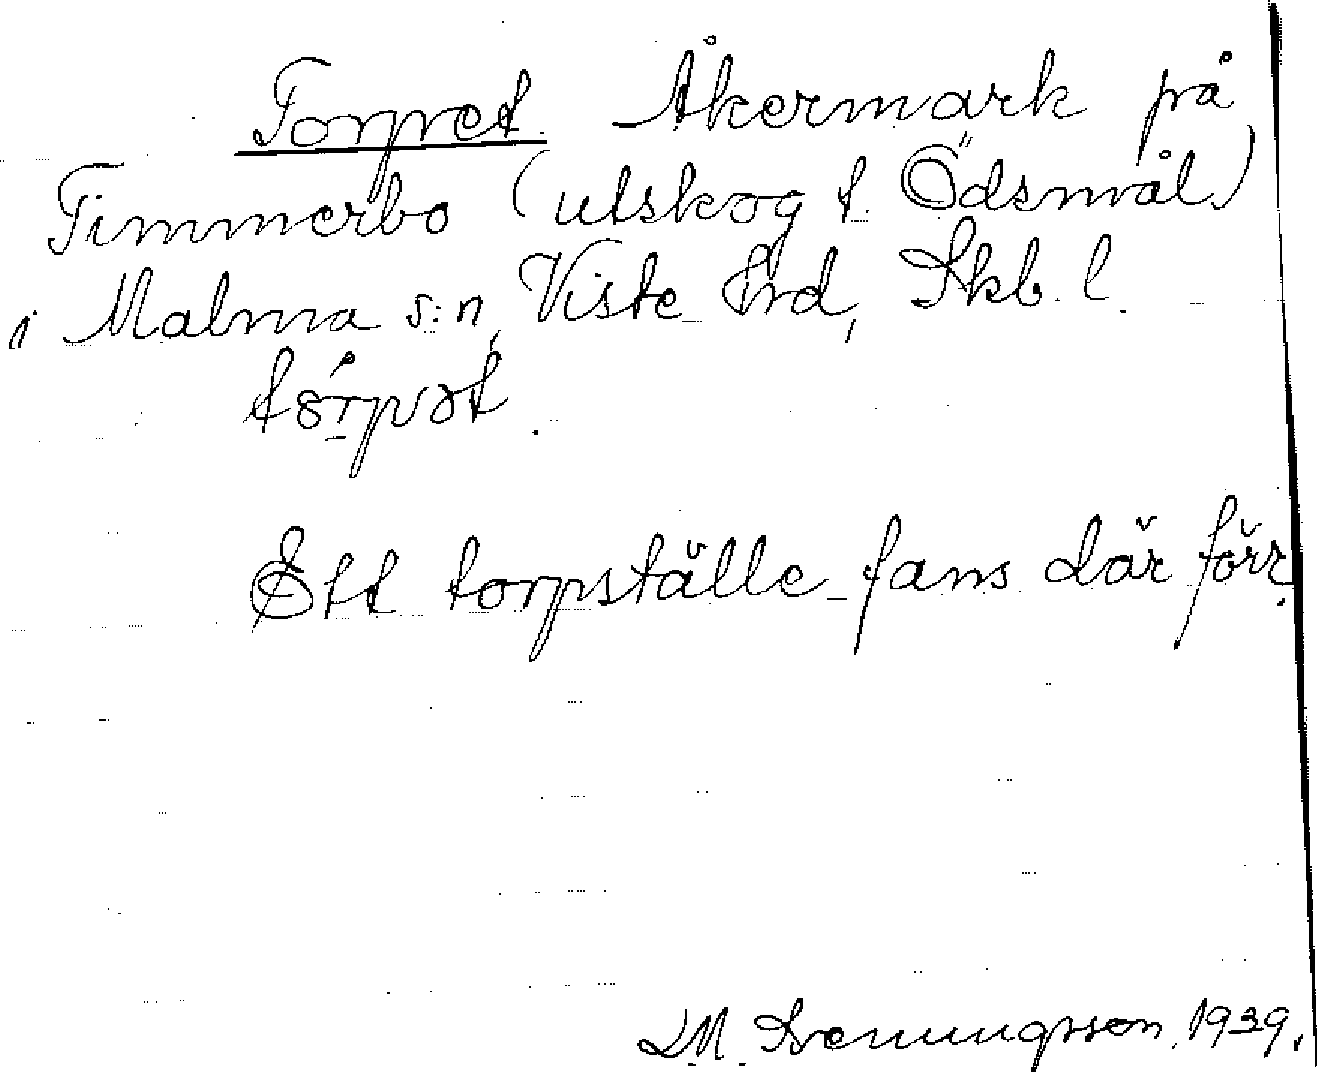 Torpet Åkermark på
Timmerbo (utskog t. Ödsmål)
i Malma s:n, Viste hrd, Skb. l.
tórpət.
Ett torpställe fans där förr.
L M. Svenungsson 1939.